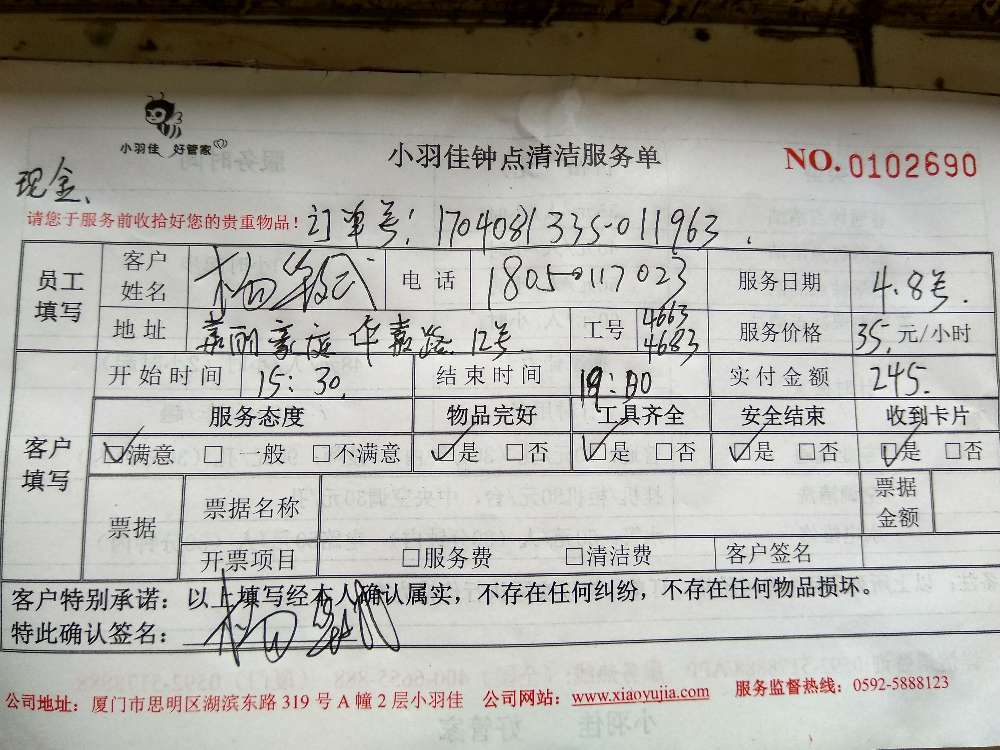 小羽佳 好管家
小羽佳钟点清洁服务单
NO.0102690
现金、
请您于服务前收拾好您的贵重物品！订单号：1704081335-011963.
员工填写 客户姓名 杨 电话 18050117023 服务日期 4.8号.
地址 嘉丽豪庭 华嘉路 12号 工号 4663 4683 服务价格 35.元/小时
客户填写 开始时间 15:30. 结束时间 19:00 实付金额 245.
服务态度 物品完好 工具齐全 安全结束 收到卡片
☑满意 □一般 □不满意 ☑是 □否 ☑是 □否 ☑是 □否 ☑是 □否
票据 票据名称 票据金额
开票项目 □服务费 □清洁费 客户签名
客户特别承诺：以上填写经本人确认属实，不存在任何纠纷，不存在任何物品损坏。
特此确认签名：杨
公司地址：厦门市思明区湖滨东路 319 号 A 幢 2 层小羽佳 公司网站：www.xiaoyujia.com 服务监督热线：0592-5888123